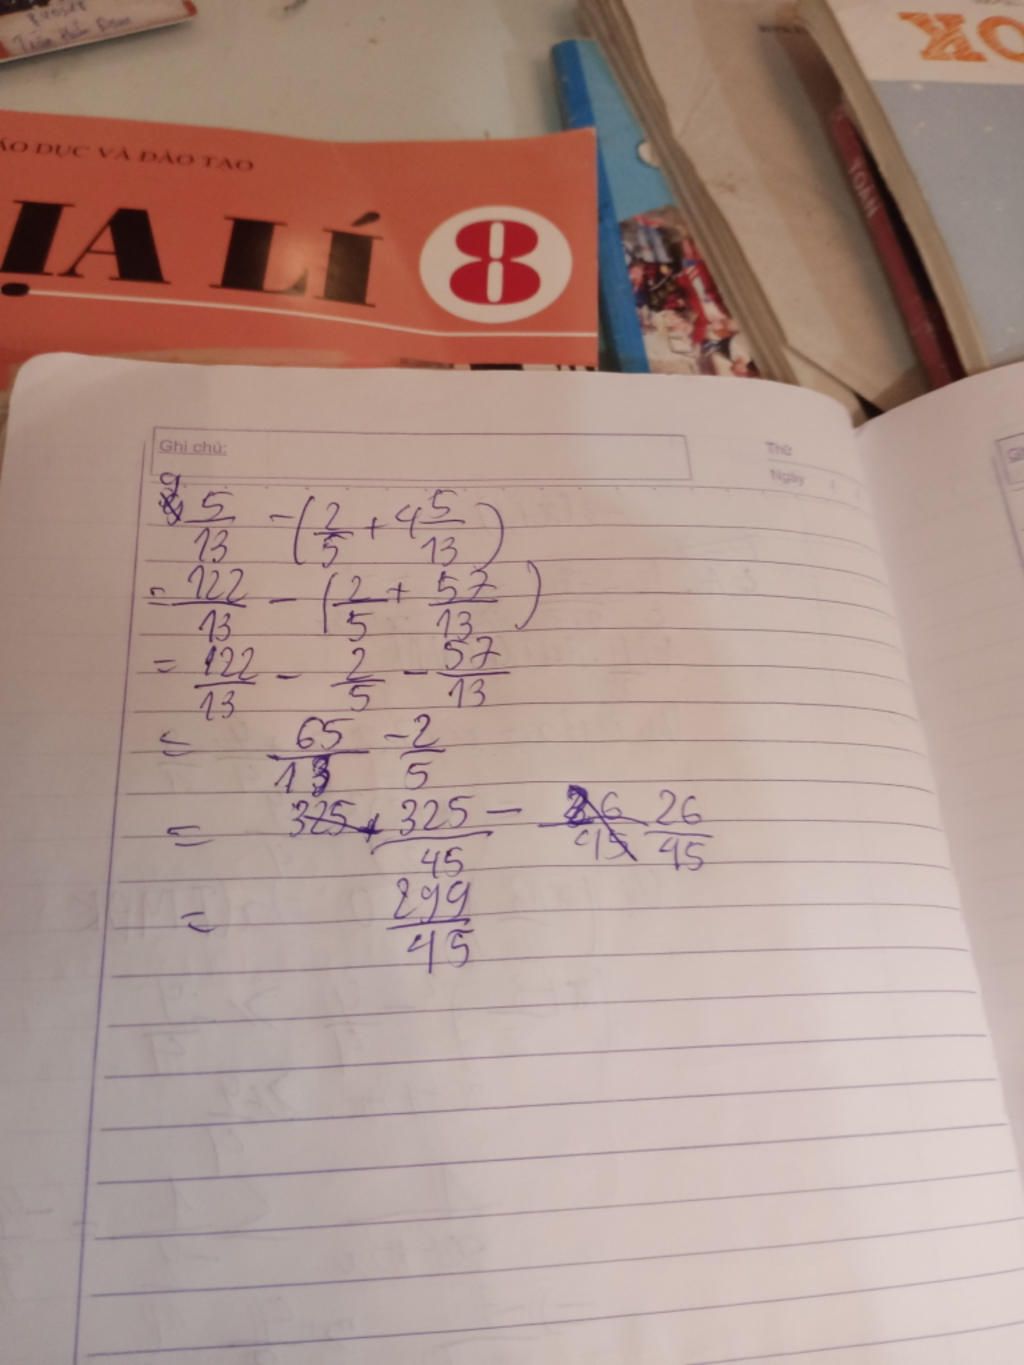 Trần Xuân
ÁO DỤC VÀ ĐÀO TẠO
ỊA LÍ 8
TOÁN
Ghi chú:
Thứ
Ngày
9 5/13 - (2/5 + 4 5/13)
= 122/13 - (2/5 + 57/13)
= 122/13 - 2/5 - 57/13
= 65/13 - 2/5
= 325/45 - 26/45
= 299/45